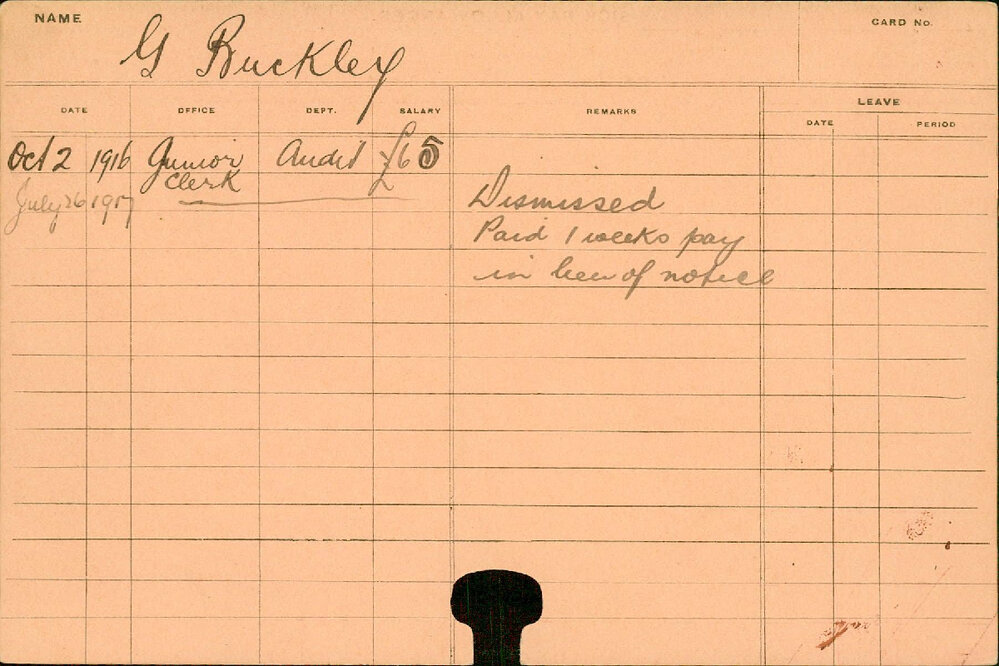 NAME
CARD No.
G Buckley
DATE OFFICE DEPT. SALARY REMARKS LEAVE
DATE PERIOD
Oct 2 1916 Junior Clerk Audit £65
July 26 1917
Dismissed
Paid 1 weeks pay
in lieu of notice